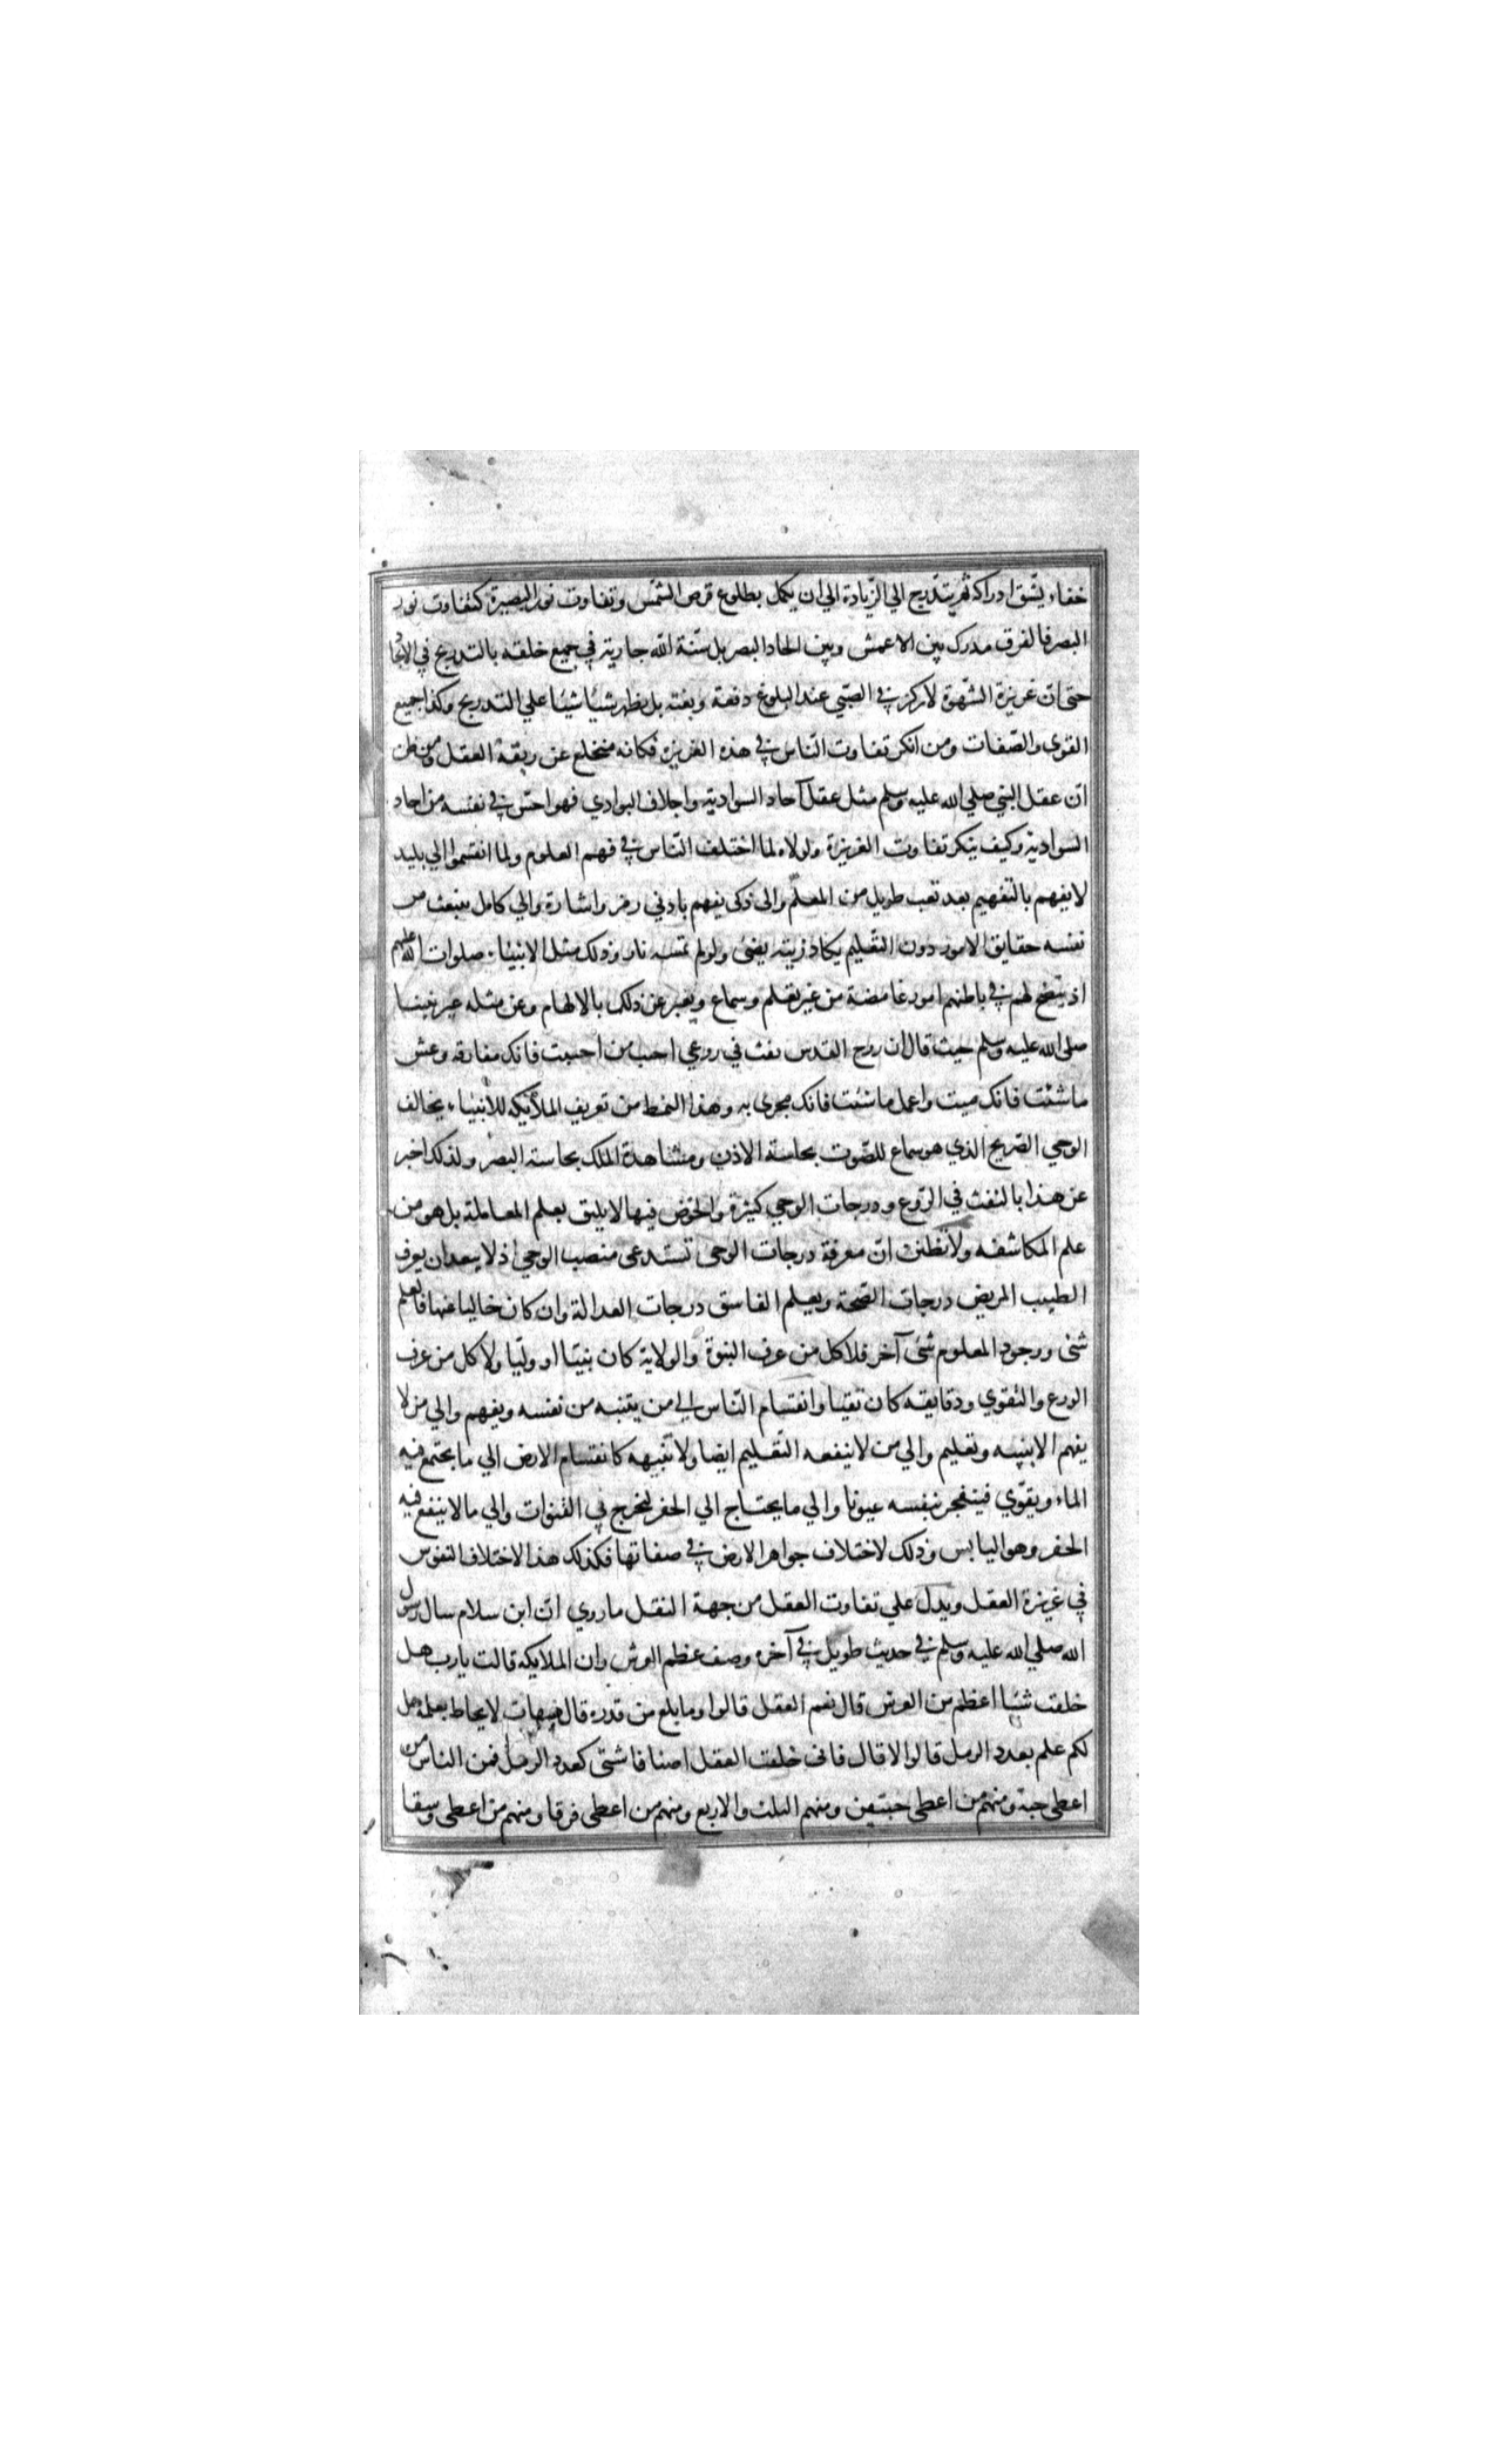 خفاء يشق ادراكه ثم يتدرج الي الزيادة الي ان يكمل بطلوع قرص الشمس وتفاوت نور البصيرة كتفاوت نور
البصر فالفرق مدرك بين الاعمش وبين الحاد البصر بل سنة الله جارية في جميع خلقه بالتدريج في الايجاد
حتى ان غريزة الشهوة لا تركز في الصبي عند البلوغ دفعة وبغتة بل يظهر شيئا شيئا علي التدريج وكذا جميع
القوي والصفات ومن انكر تفاوت الناس في هذه الغريزة فكانه منخلع عن ربقة العقل ومن ظن
ان عقل النبي صلي الله عليه وسلم مثل عقل آحاد السوادية واجلاف البوادي فهو اخس في نفسه من احاد
السوادية وكيف ينكر تفاوت الغريزة ولولاه لما اختلف الناس في فهم العلوم ولما انقسموا الي بليد
لا يفهم بالتفهيم بعد تعب طويل من المعلم والى ذكى يفهم بادني رمز واشارة والي كامل ينبعث من
نفسه حقايق الامور دون التعليم يكاد زيته يضئ ولو لم تمسه نار وذلك مثل الانبياء صلوات الله عليهم
اذ يتضح لهم في باطنهم امور غامضة من غير تعلم وسماع ويعبر عن ذلك بالالهام وعن مثله عبر نبينا
صلى الله عليه وسلم حيث قال ان روح القدس نفث في روعي احب من احببت فانك مفارقه وعش
ما شئت فانك ميت واعمل ما شئت فانك مجزى به وهذا النمط من تعريف الملائكه للانبياء يخالف
الوحي الصريح الذي هو سماع للصوت بحاسة الاذن ومشاهدة الملك بحاسة البصر ولذلك اخبر
عن هذا بالنفث في الروع ودرجات الوحي كثيرة والخوض فيها لا يليق بعلم المعاملة بل هو من
علم المكاشفه ولا تظنن ان معرفة درجات الوحى تستدعى منصب الوحي اذ لا يبعد ان يعرف
الطبيب المريض درجات الصحة ويعلم الفاسق درجات العدالة وان كان خاليا عنها فالعلم
شئ ووجود المعلوم شئ آخر فلا كل من عرف النبوة والولاية كان نبيا او وليا ولا كل من عرف
الورع والتقوي ودقايقه كان تقيا وانقسام الناس الي من يتنبه من نفسه ويفهم والي من لا
يفهم الا بتنبيه وتعليم والي من لا ينفعه التعليم ايضا ولا تنبيهه كانقسام الارض الي ما يجتمع فيه
الماء ويقوي فينفجر بنفسه عيونا والي ما يحتاج الي الحفر ليخرج في القنوات والي ما لا ينفع فيه
الحفر وهو اليابس وذلك لاختلاف جواهر الارض في صفاتها فكذلك هذا الاختلاف النفوس
في غريزة العقل ويدل علي تفاوت العقل من جهة النقل ما روي ان ابن سلام سال رسول
الله صلي الله عليه وسلم في حديث طويل في آخره وصف عظم العرش وان الملايكه قالت يا رب هل
خلقت شيئا اعظم من العرش قال نعم العقل قالوا وما بلغ من قدره قال هيهات لا يحاط بعلمه هل
لكم علم بعدد الرمل قالوا لا قال فانى خلقت العقل اصنافا شتى كعدد الرمل فمن الناس من
اعطى حبة ومنهم من اعطى حبتين ومنهم الثلث والاربع ومنهم من اعطى فرقا ومنهم من اعطى وسقا